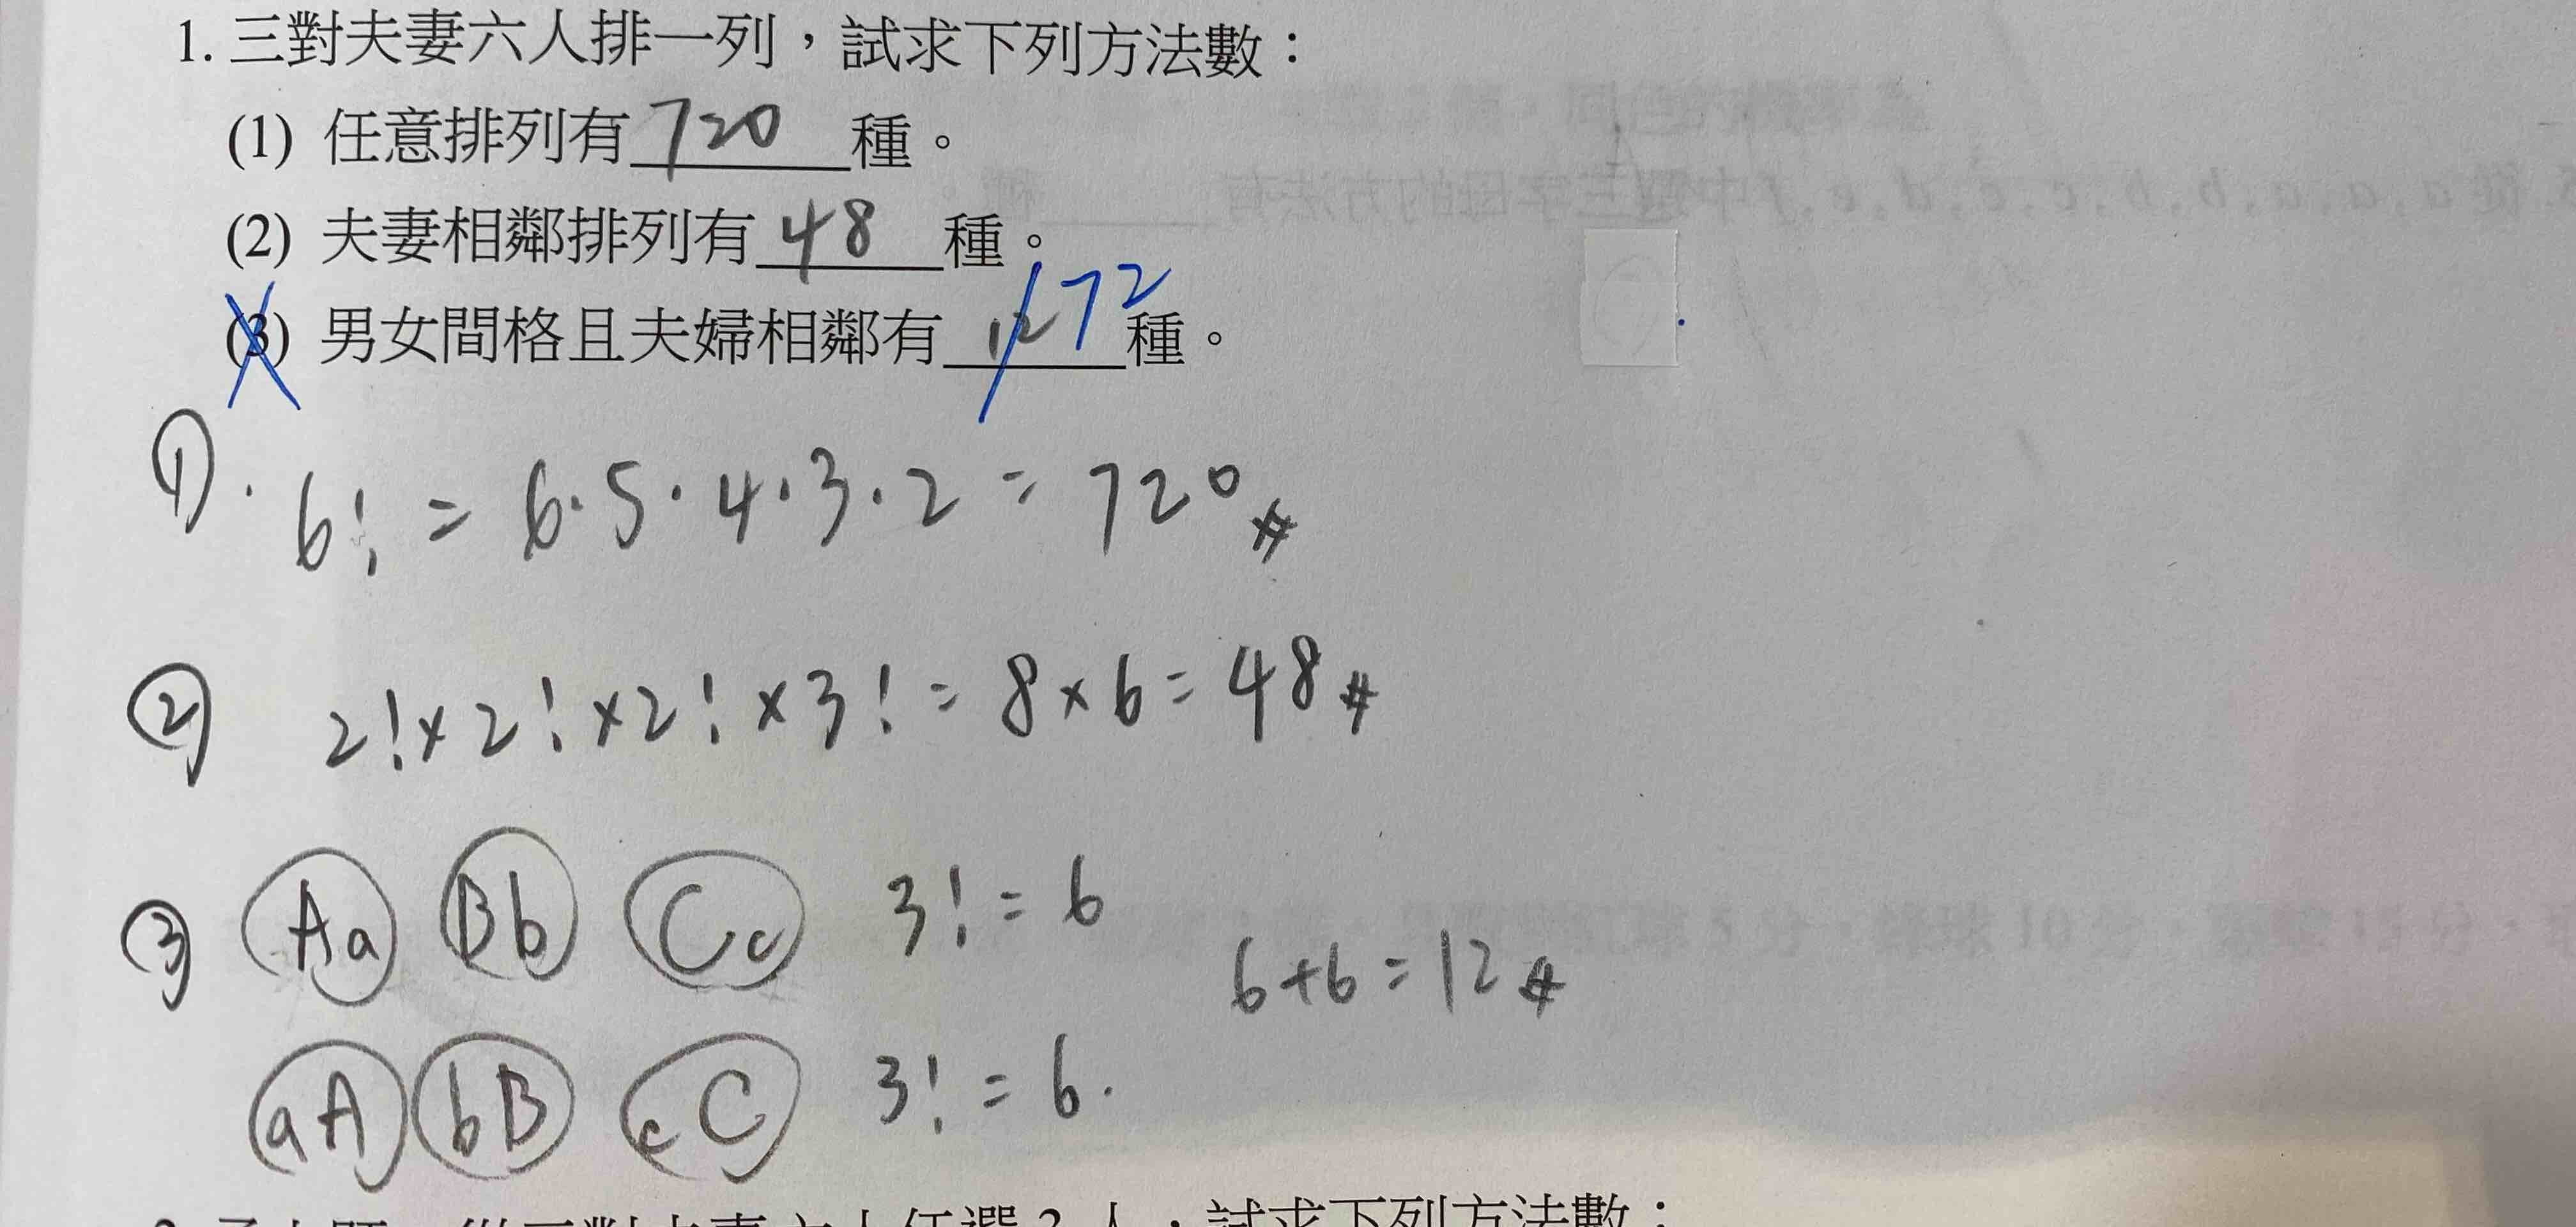 1. 三對夫妻六人排一列，試求下列方法數：
(1) 任意排列有 720 種。
(2) 夫妻相鄰排列有 48 種。
(3) 男女間格且夫婦相鄰有 12 72 種。
① . 6! = 6·5·4·3·2 = 720 #
② 2!×2!×2!×3! = 8×6 = 48 #
③ Aa Bb Cc 3! = 6
6+6=12 #
aA bB cC 3! = 6.